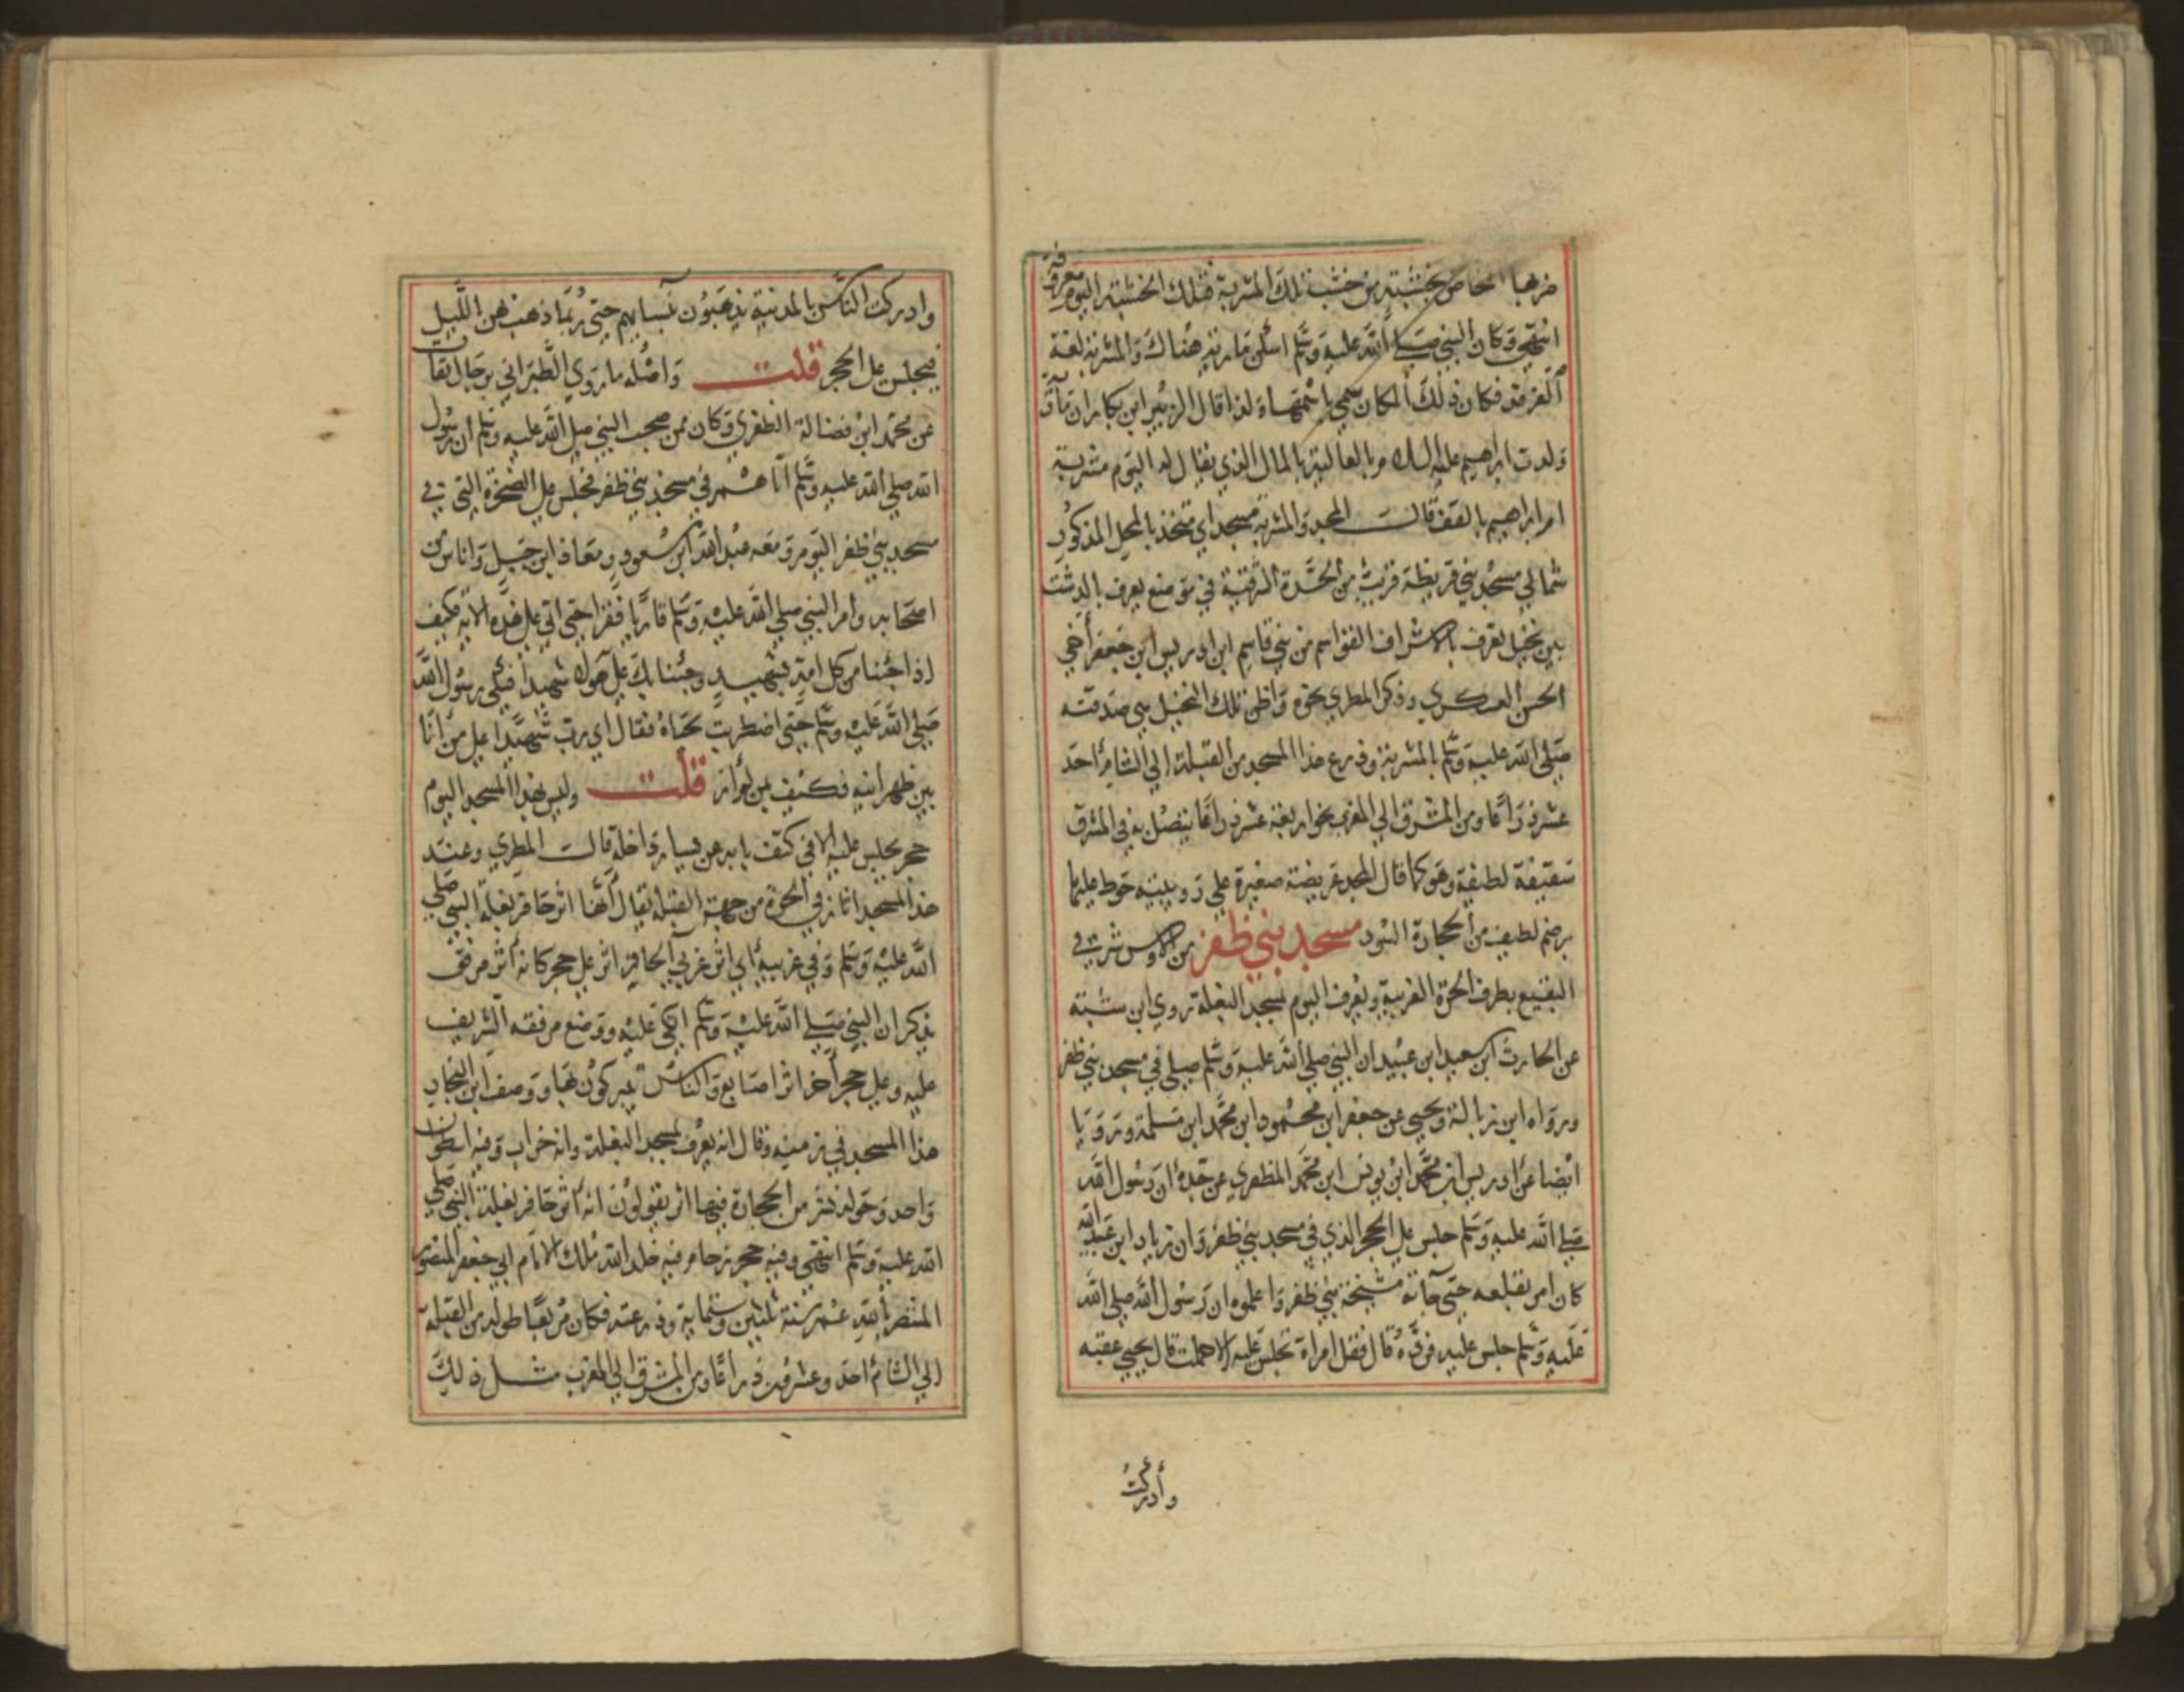 ضربها المخاض بخشبة من خشب تلك المشربة فتلك الخشبة اليوم معروفة
انتهى وكان النبي صلى الله عليه وسلم اسكن مارية هناك والمشربة لغة
الغرفة فكان ذلك المكان سمي باسمها ولذا قال الزبير ابن بكار ان مارية
ولدت ابراهيم عليه السلام بالعالية بالمال الذي يقال له اليوم مشربة
ام ابراهيم بالقف قالت المجد والمشربة مسجد اي متخذ بالمحل المذكور
شمالي مسجد بني قريظة قريب من الحرة الشرقية في موضع يعرف بالدشت
بين نخيل تعرف بالاشراف القواسم من بني قاسم ابن ادريس ابن جعفر أخي
الحسن العسكري وذكر المطري نحوه واظن تلك النخيل هي صدقته
صلى الله عليه وسلم بالمشربة وذرع هذا المسجد من القبلة الي الشام احد
عشر ذراعا ومن المشرق الي المغرب نحو اربعة عشر ذراعا يتصل به في المشرق
سقيفة لطيفة وهو كما قال المجد عريضة صغيرة علي رويبية حوط عليها
برضم لطيف من الحجارة السود مسجد بني ظفر من الاوس شرقي
البقيع بطرف الحرة الغربية ويعرف اليوم بمسجد البغلة روي ابن شبة
عن الحارث ابن سعيد ابن عبيد ان النبي صلى الله عليه وسلم صلى في مسجد بني ظفر
ورواه ابن زبالة ويحيى عن جعفر ابن محمود ابن محمد ابن مسلمة ورويا
ايضا عن ادريس ابن محمد ابن يونس ابن محمد الظفري عن جده ان رسول الله
صلى الله عليه وسلم جلس على الحجر الذي في مسجد بني ظفر وان زياد ابن عبيد الله
كان امر بقلعه حتى جاءته مشيخة بني ظفر واعلموه ان رسول الله صلى الله
عليه وسلم جلس عليه فرده قال فقل امراة تجلس عليه الا حملت قال يحيي عقبه
وأدركتُ
وادركت الناس بالمدينة يذهبون بنسايهم حتى ربما ذهب بهن الليل
فيجلس على الحجر قلت واصله ما روي الطبراني برجال ثقات
عن محمد ابن فضالة الظفري وكان ممن صحب النبي صلى الله عليه وسلم ان رسول
الله صلى الله عليه وسلم اتاهم في مسجد بني ظفر فجلس على الصخرة التي في
مسجد بني ظفر اليوم ومعه عبد الله ابن مسعود ومعاذ ابن جبل واناس من
اصحابه وامر النبي صلى الله عليه وسلم قاريا فقرا حتى اتي على هذه الاية فكيف
اذا جئنا من كل امة بشهيد وجئنا بك على هولاء شهيدا فبكي رسول الله
صلى الله عليه وسلم حتى اضطربت لحياه فقال اي رب شهيدا على من أنا
بين ظهرانيه فكيف بمن لم اره قلت وليس بهذا المسجد اليوم
حجر يجلس عليه الا في كتف بابه عن يسار داخله قالت المطري وعند
هذا المسجد اثار في الحرة من جهة القبلة يقال أنها اثر حافر بغلة النبي صلى
الله عليه وسلم وفي غربيه أي اثر غربي الحافر اثر على حجر كانه أثر مرفق
يذكر ان النبي صلى الله عليه وسلم اتكي عليه ووضع مرفقه الشريف
عليه وعلى حجر أخر اثر اصابع والناس يتبركون بها ووصف ابن النجار
هذا المسجد في زمنه وقال انه يعرف بمسجد البغلة وانه خراب وفيه اسطوان
واحد وحوله نشز من الحجارة فيها اثر يقولون انه أثر حافر بغلة النبي صلى
الله عليه وسلم انتهى وفيه حجر رخام فيه خلد الله ملك الامام ابي جعفر المنصور
المنتصر بالله عمر سنة ثلثين وستماية وذرعته فكان مربعا طوله من القبلة
الي الشام احد وعشرون ذراعا ومن المشرق الي المغرب مثل ذلك